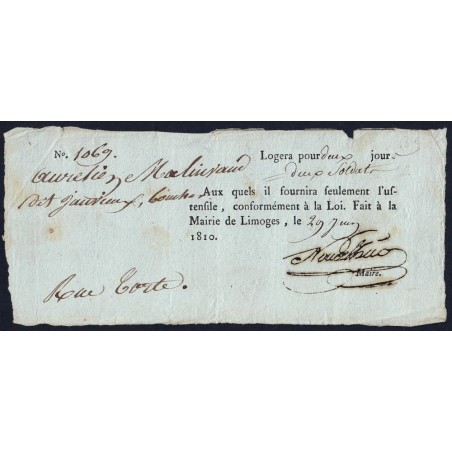 No. 1069. Logera pour deux jours
aurelien Malinvaud deux Soldats
dit janvieux,
Aux quels il fournira seulement l'us-
tensile, conformément à la Loi. Fait à la
Mairie de Limoges, le 29
1810.
Maire.
Rue Torte.